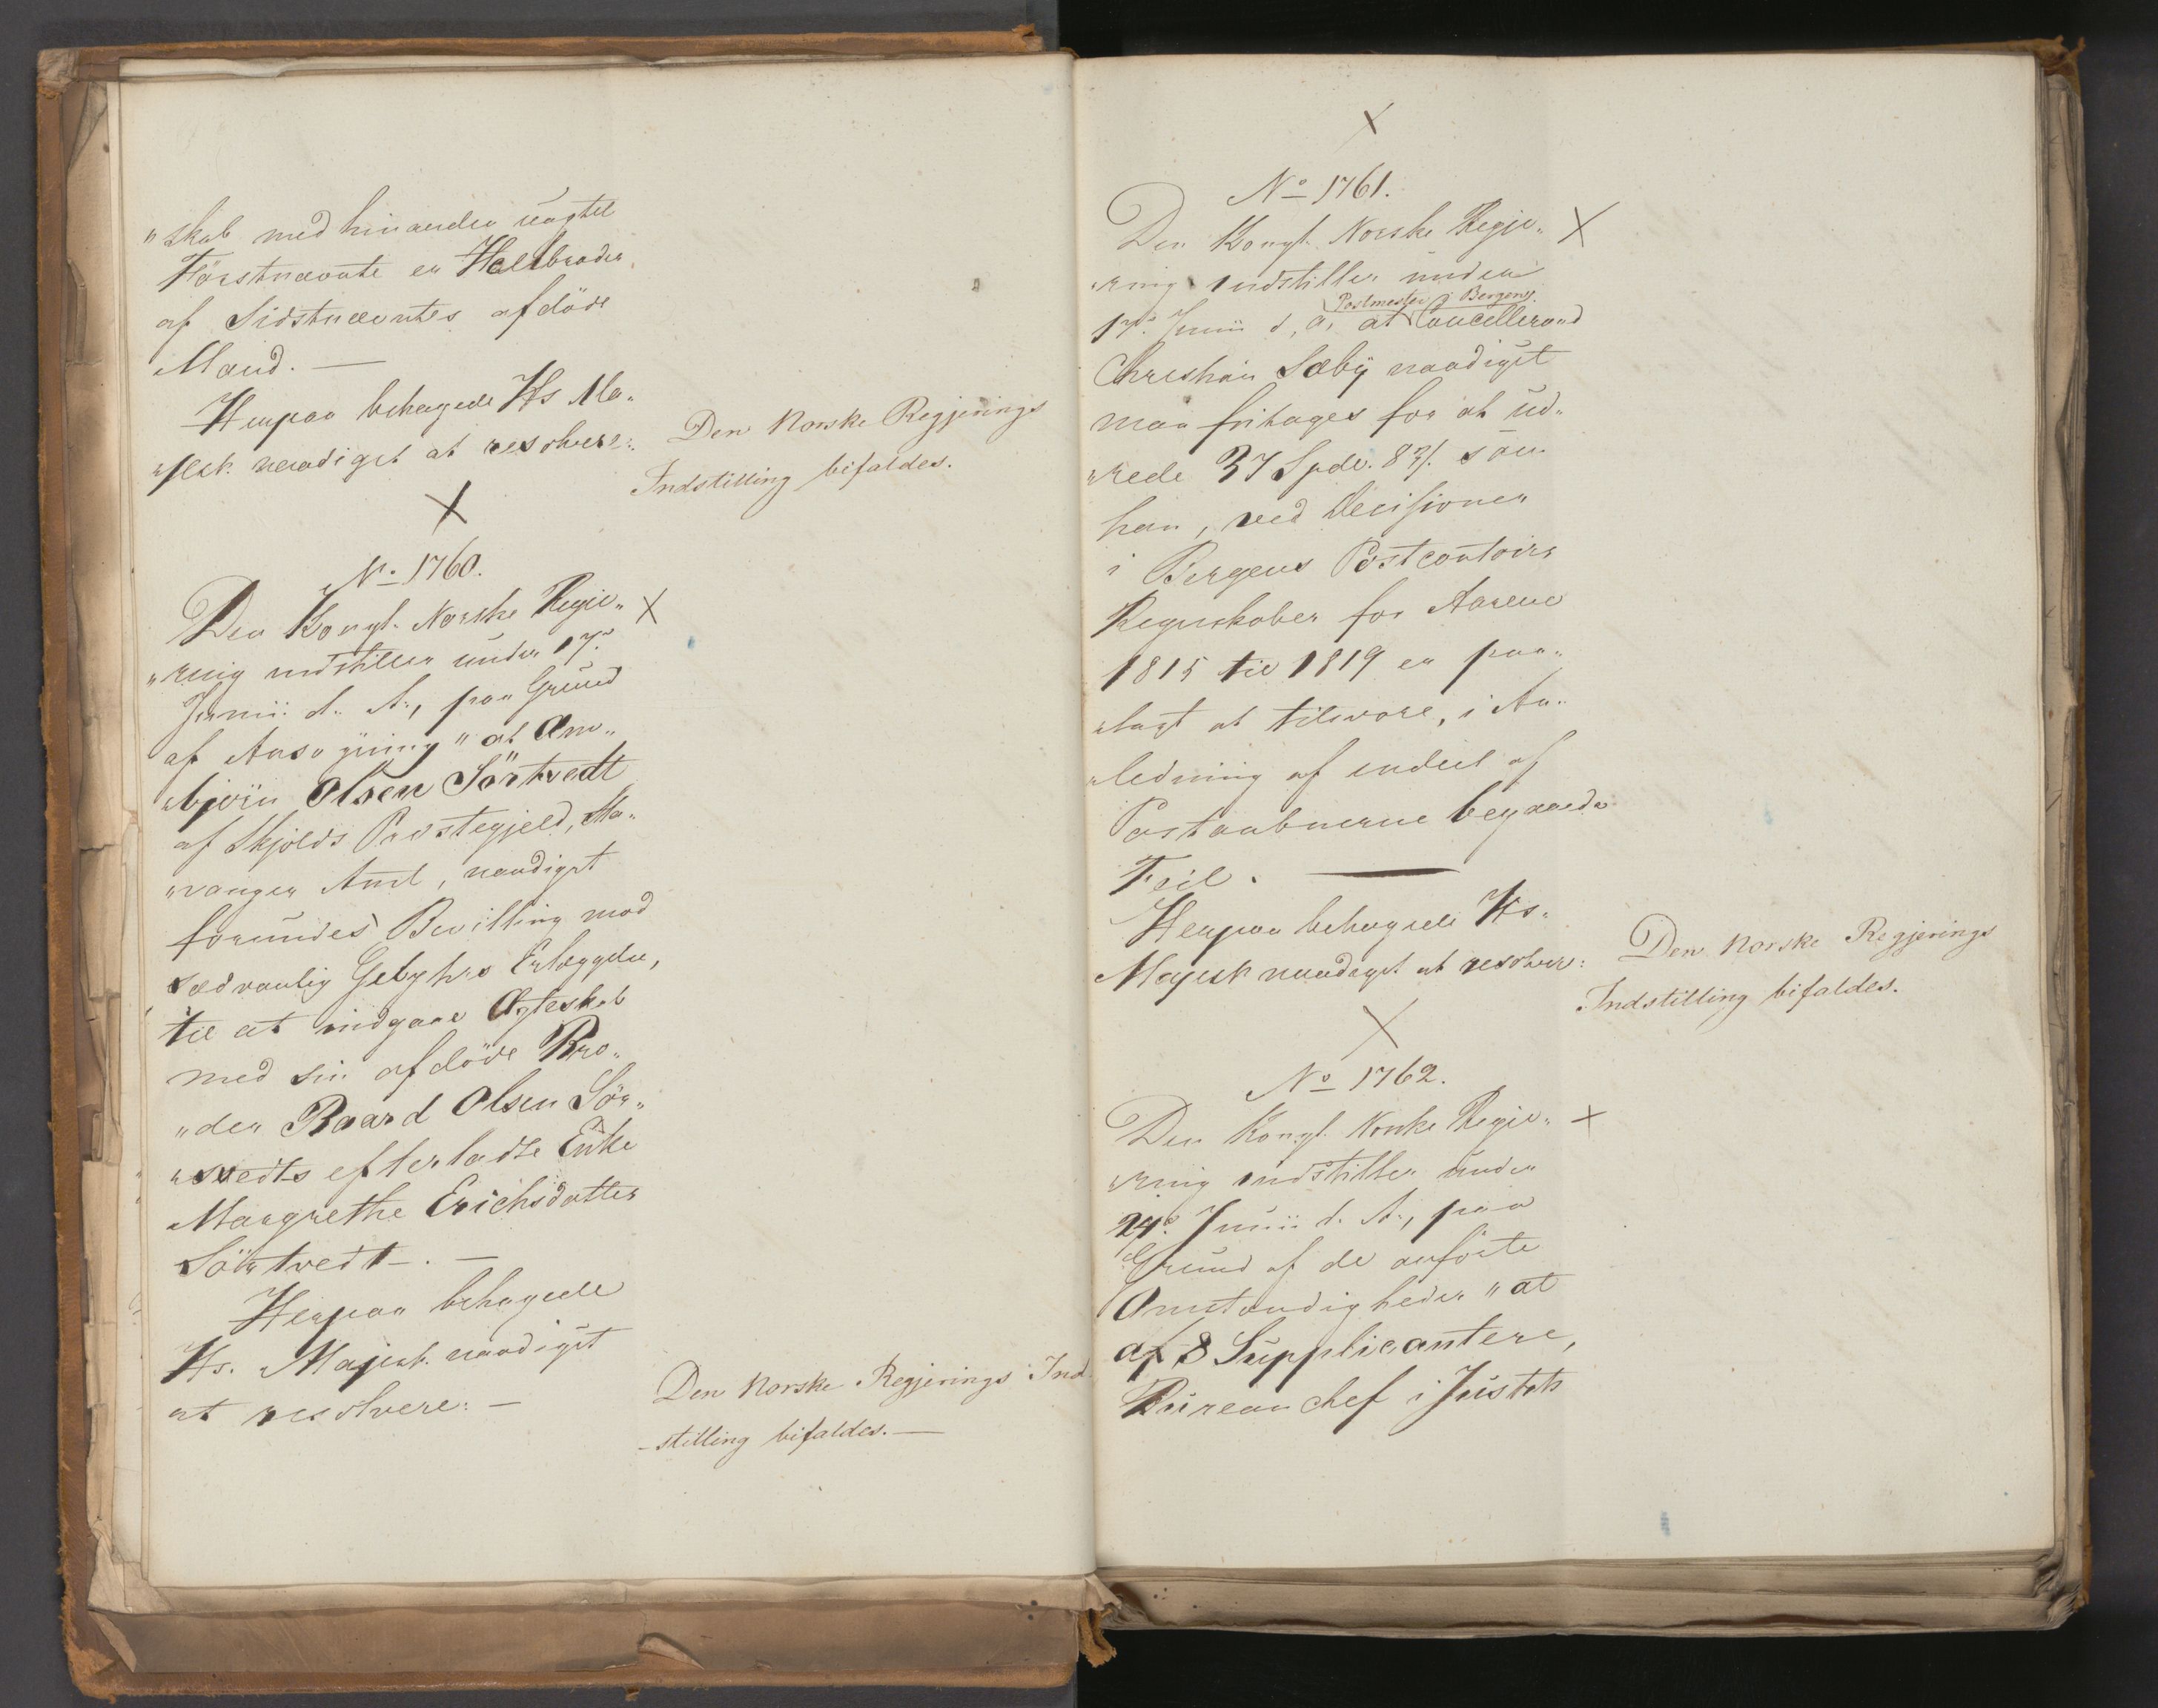 "skab med hinanden uagtet
Førstnævnte er Halvbroder
af Sidstnævntes afdöde
Mand. —
Herpaa behagede Hs Ma„
„jest. naadigst at resolvere:
Den Norske Regjerings
Indstilling bifaldes.
No 1760.
Den Kongl. Norske Regje„
„ring indstiller under 17de
Junii d. A., paa Grund
af Ansøgning "at Am„
„bjørn Olsen Sörtvedt
af Skjolds Præstegjeld, Sta„
„vanger Amt, naadigst
forundes Bevilling mod
sædvanlig Gebyhrs Erlæggelse,
til at indgaae Ægteskab
med sin afdöde Bro„
„der Baard Olsen Sör„
„tvedts efterladte Enke
Margrethe Erichsdatter
Sörtvedt. —
Herpaa behagede
Hs. Majest. naadigst
at resolvere: —
Den Norske Regjerings Ind
- stilling bifaldes. —
No 1761.
Den Kongl. Norske Regje„
„ring indstiller under
Postmester i Bergen,
17de Junii d. A. at Cancelleraad
Christian Sæby naadigst
maa fritages for at ud„
„rede 37 Spdlr. 83 s. som
han, ved Decisioner
i Bergens Postcontoirs
Regnskaber for Aarene
1815 til 1819 er paa„
„lagt at tilsvare, i An„
„ledning af endeel af
Postaabnerne begaaede
Feil. —
Herpaa behagede Hs.
Majest naadigst at resolvere:
Den Norske Regjerings
Indstilling bifaldes.
No 1762.
Den Kongl. Norske Regje„
„ring indstiller under
24de Junii d. A., paa
Grund af de anförte
Omstændigheder "at
af 8 Supplicantere,
Bureauchef i Justits